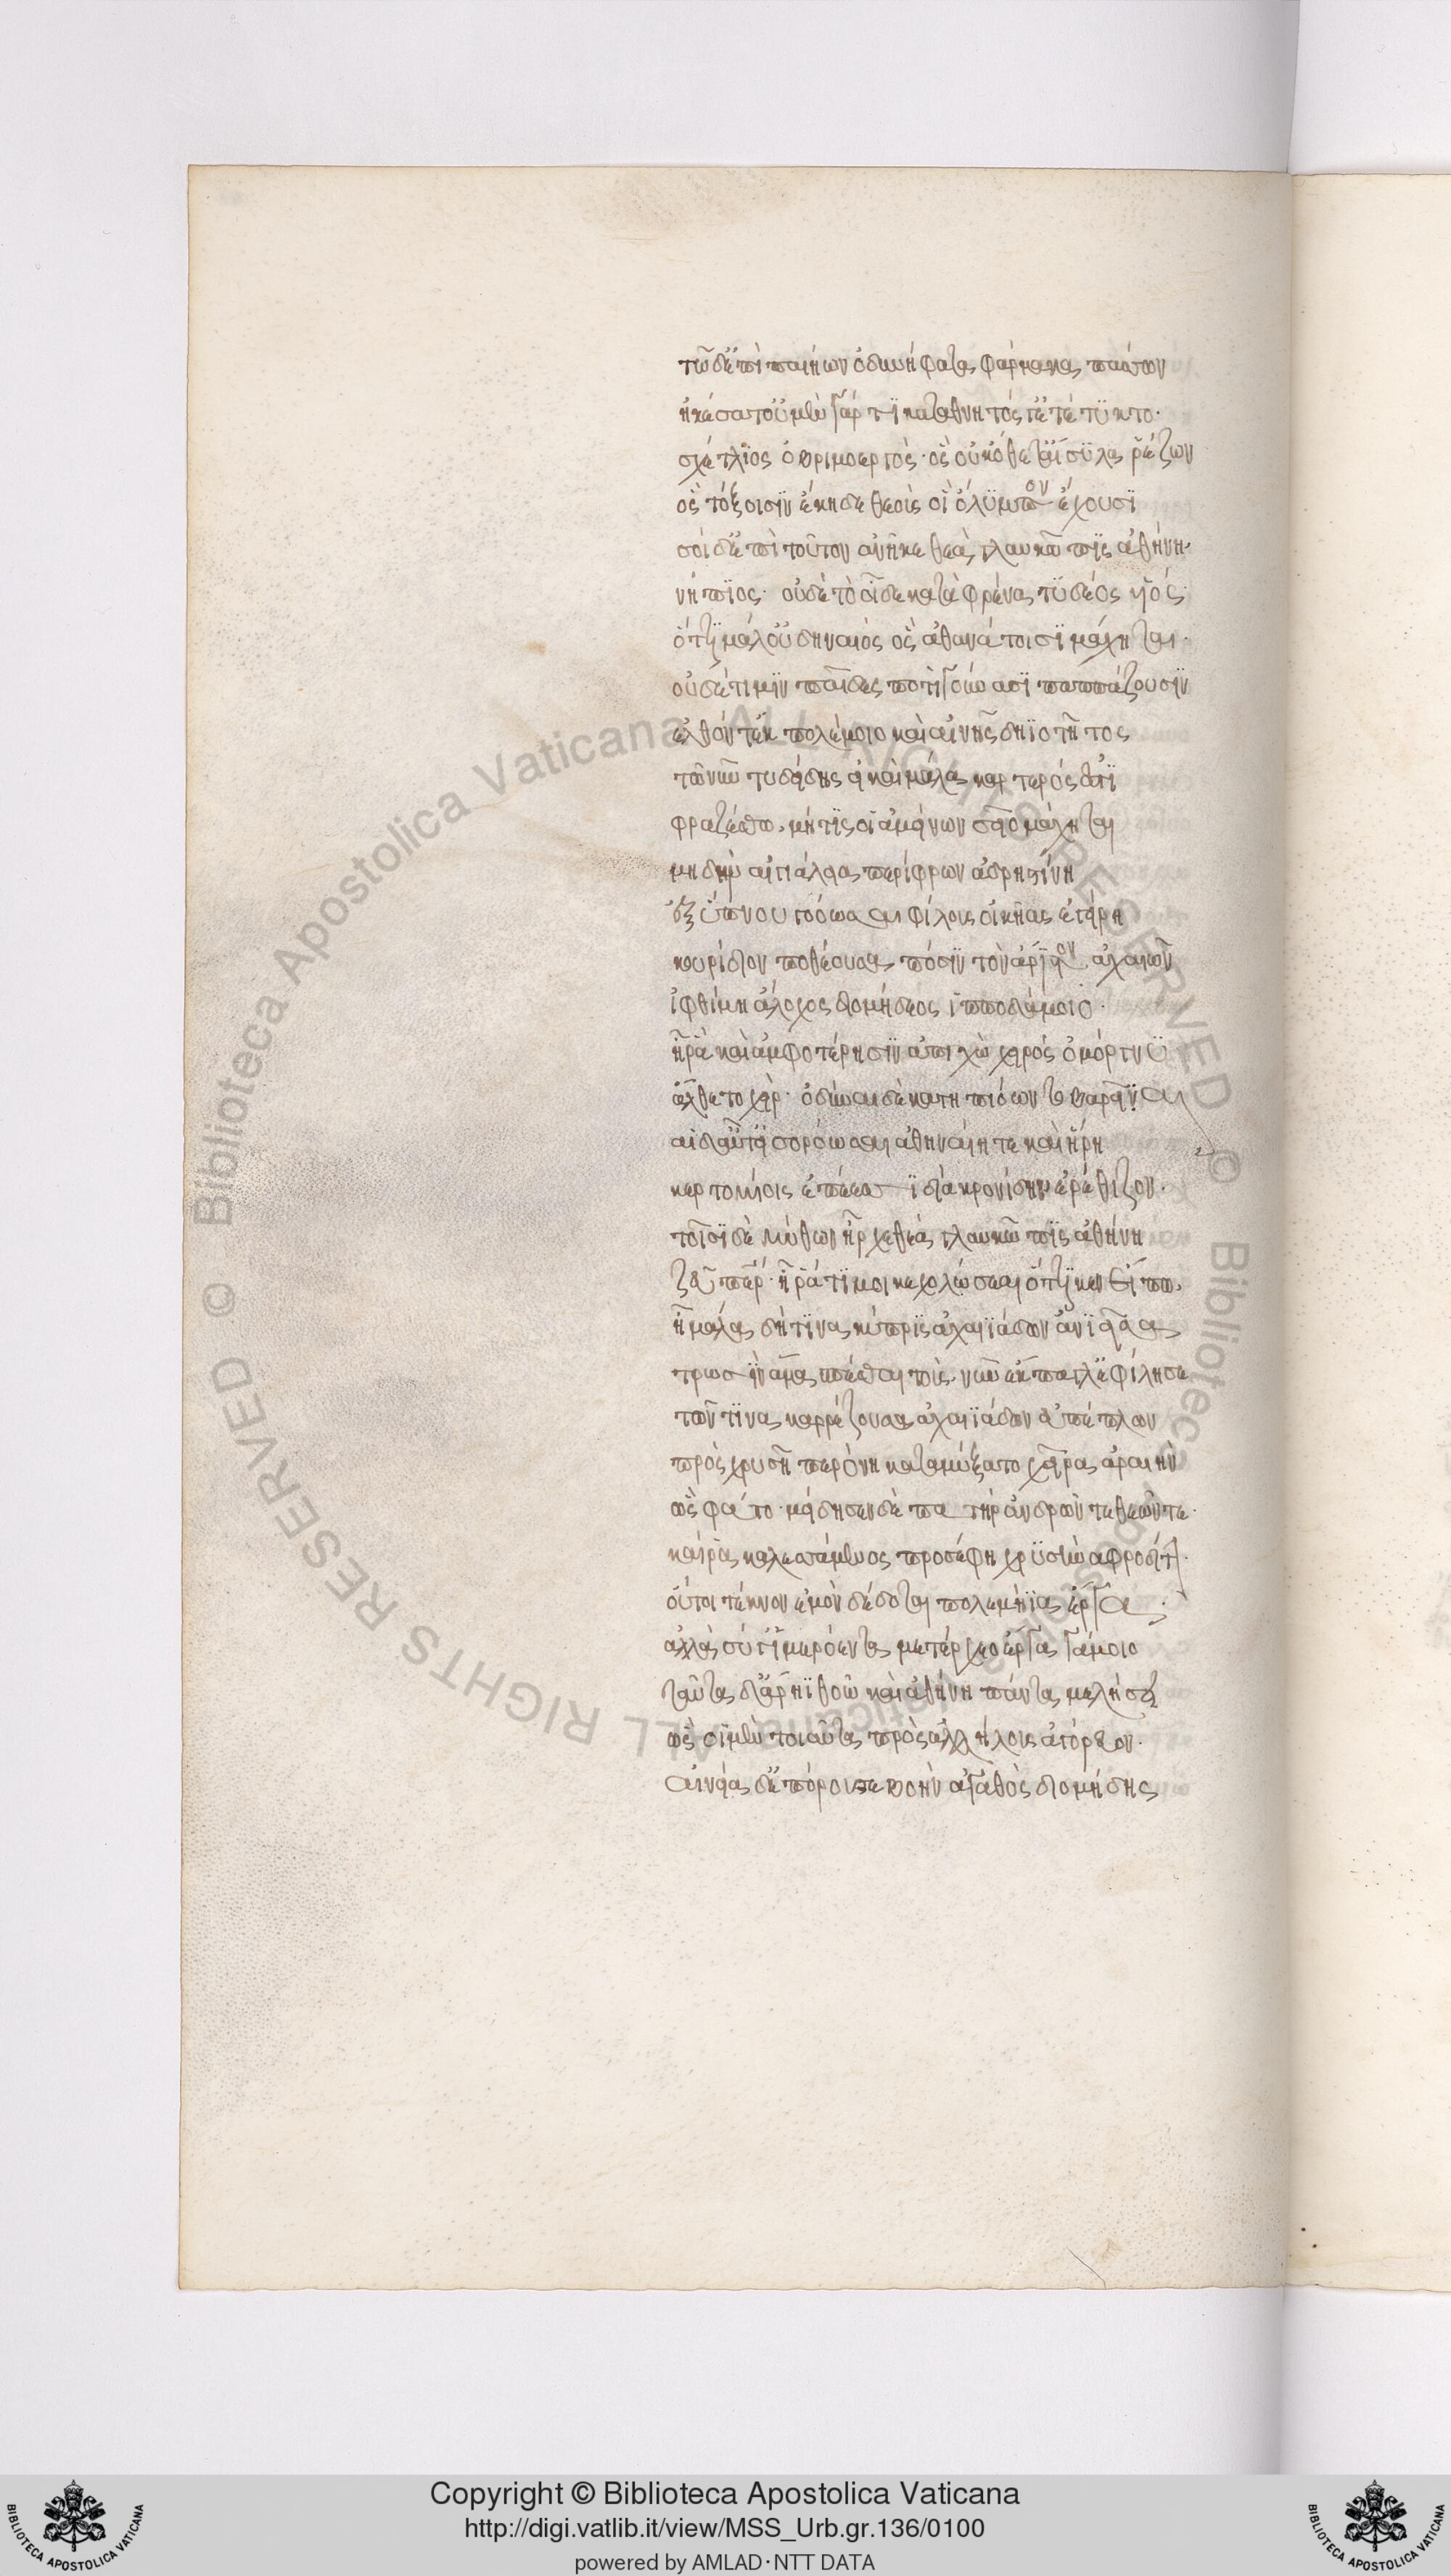 τῶ δ' ἔπι παιήων ὀδυνήφατα φάρμακα πάσσων
ἠκέσατ' οὐ μὲν γάρ τϊ καταθνητός γ' ἐτέτϋκτο·
σχέτλϊος ὀβριμοεργὸς· ὃς οὐκ ὄθετ' αἴσϋλα ῥέζων
ὃς τόξοισϊν ἔκηδε θεοὺς οἳ ὄλϋμπον ἔχουσϊ
σοὶ δ' ἐπὶ τοῦτον ἀνῆκε θεὰ γλαυκῶπϊς ἀθήνη·
νήπϊος· οὐδὲ τὸ οἶδε κατὰ φρένα τϋδέος ϋἱός·
ὅττϊ μάλ' οὐ δηναιὸς ὃς ἀθανάτοισϊ μάχηται·
οὐδέ τι μϊν παῖδες ποτὶ γούνασϊ παππάζουσϊν
ἐλθόντ' ἐκ πολέμοιο καὶ αἰνῆς δηϊοτῆτος
τῶ νῦν τυδείδης εἰ καὶ μάλα καρτερός ἐστϊ
φραζέσθω μή τϊς οἱ ἀμείνων σεῖο μάχηται
μὴ δὴν αἰγιάλεια περίφρων ἀδρηστίνη
ἐξ ὕπνου γοόωσα φίλους οἰκῆας ἐγείρη
κουρίδιον ποθέουσα πόσϊν τὸν ἄρϊστον ἀχαιῶν
ἰφθίμη ἄλοχος διομήδεος ἱπποδάμοιο·
ἦ ῥα καὶ ἀμφοτέρησϊν ἀπ' ἰχῶ χειρὸς ὀμόργνϋ
ἄλθετο χεὶρ· ὀδύναι δὲ κατηπιόωντο βαρεῖαι
αἱ δ' αὖτ' εἰσορόωσαι ἀθηναίη τε καὶ ἥρη
κερτομίοις ἐπέεσσϊ δία κρονίδην ἐρέθιζον·
τοῖσϊ δὲ μύθων ἦρχε θεὰ γλαυκῶπϊς ἀθήνη
ζεῦ πάτερ· ἦ ῥά τϊ μοι κεχολώσεαι ὅττϊ κεν εἴπω
ἦ μάλα δή τϊνα κύπρϊς ἀχαιϊάδων ἀνϊεῖσα
τρωσϊν ἅμα σπέσθαι τοὺς νῦν ἔκπαγλ' ἐφίλησε
τῶν τϊνα καρρέζουσα ἀχαιϊάδων εὐπέπλων
πρὸς χρυσῆ περόνη καταμύξατο χεῖρα ἀραιήν
ὣς φάτο· μείδησεν δὲ πατὴρ ἀνδρῶν τε θεῶν τε·
καί ῥα καλεσσάμενος προσέφη χρϋσῆν ἀφροδίτην·
οὔτοι τέκνον ἐμὸν δέδοται πολεμήϊα ἔργα·
ἀλλὰ σύ γ' ἱμερόεντα μετέρχεο ἔργα γάμοιο
ταῦτα δ' ἄρηϊ θοῶ καὶ ἀθήνη πάντα μελήσει
ὣς οἱ μὲν τοιαῦτα πρὸς ἀλλήλους ἀγόρευον·
αἰνεία δ' ἐπόρουσε βοὴν ἀγαθὸς διομήδης
© Biblioteca Apostolica Vaticana ALL RIGHTS RESERVED
Copyright © Biblioteca Apostolica Vaticana
http://digi.vatlib.it/view/MSS_Urb.gr.136/0100
powered by AMLAD·NTT DATA
BIBLIOTECA APOSTOLICA VATICANA
BIBLIOTECA APOSTOLICA VATICANA